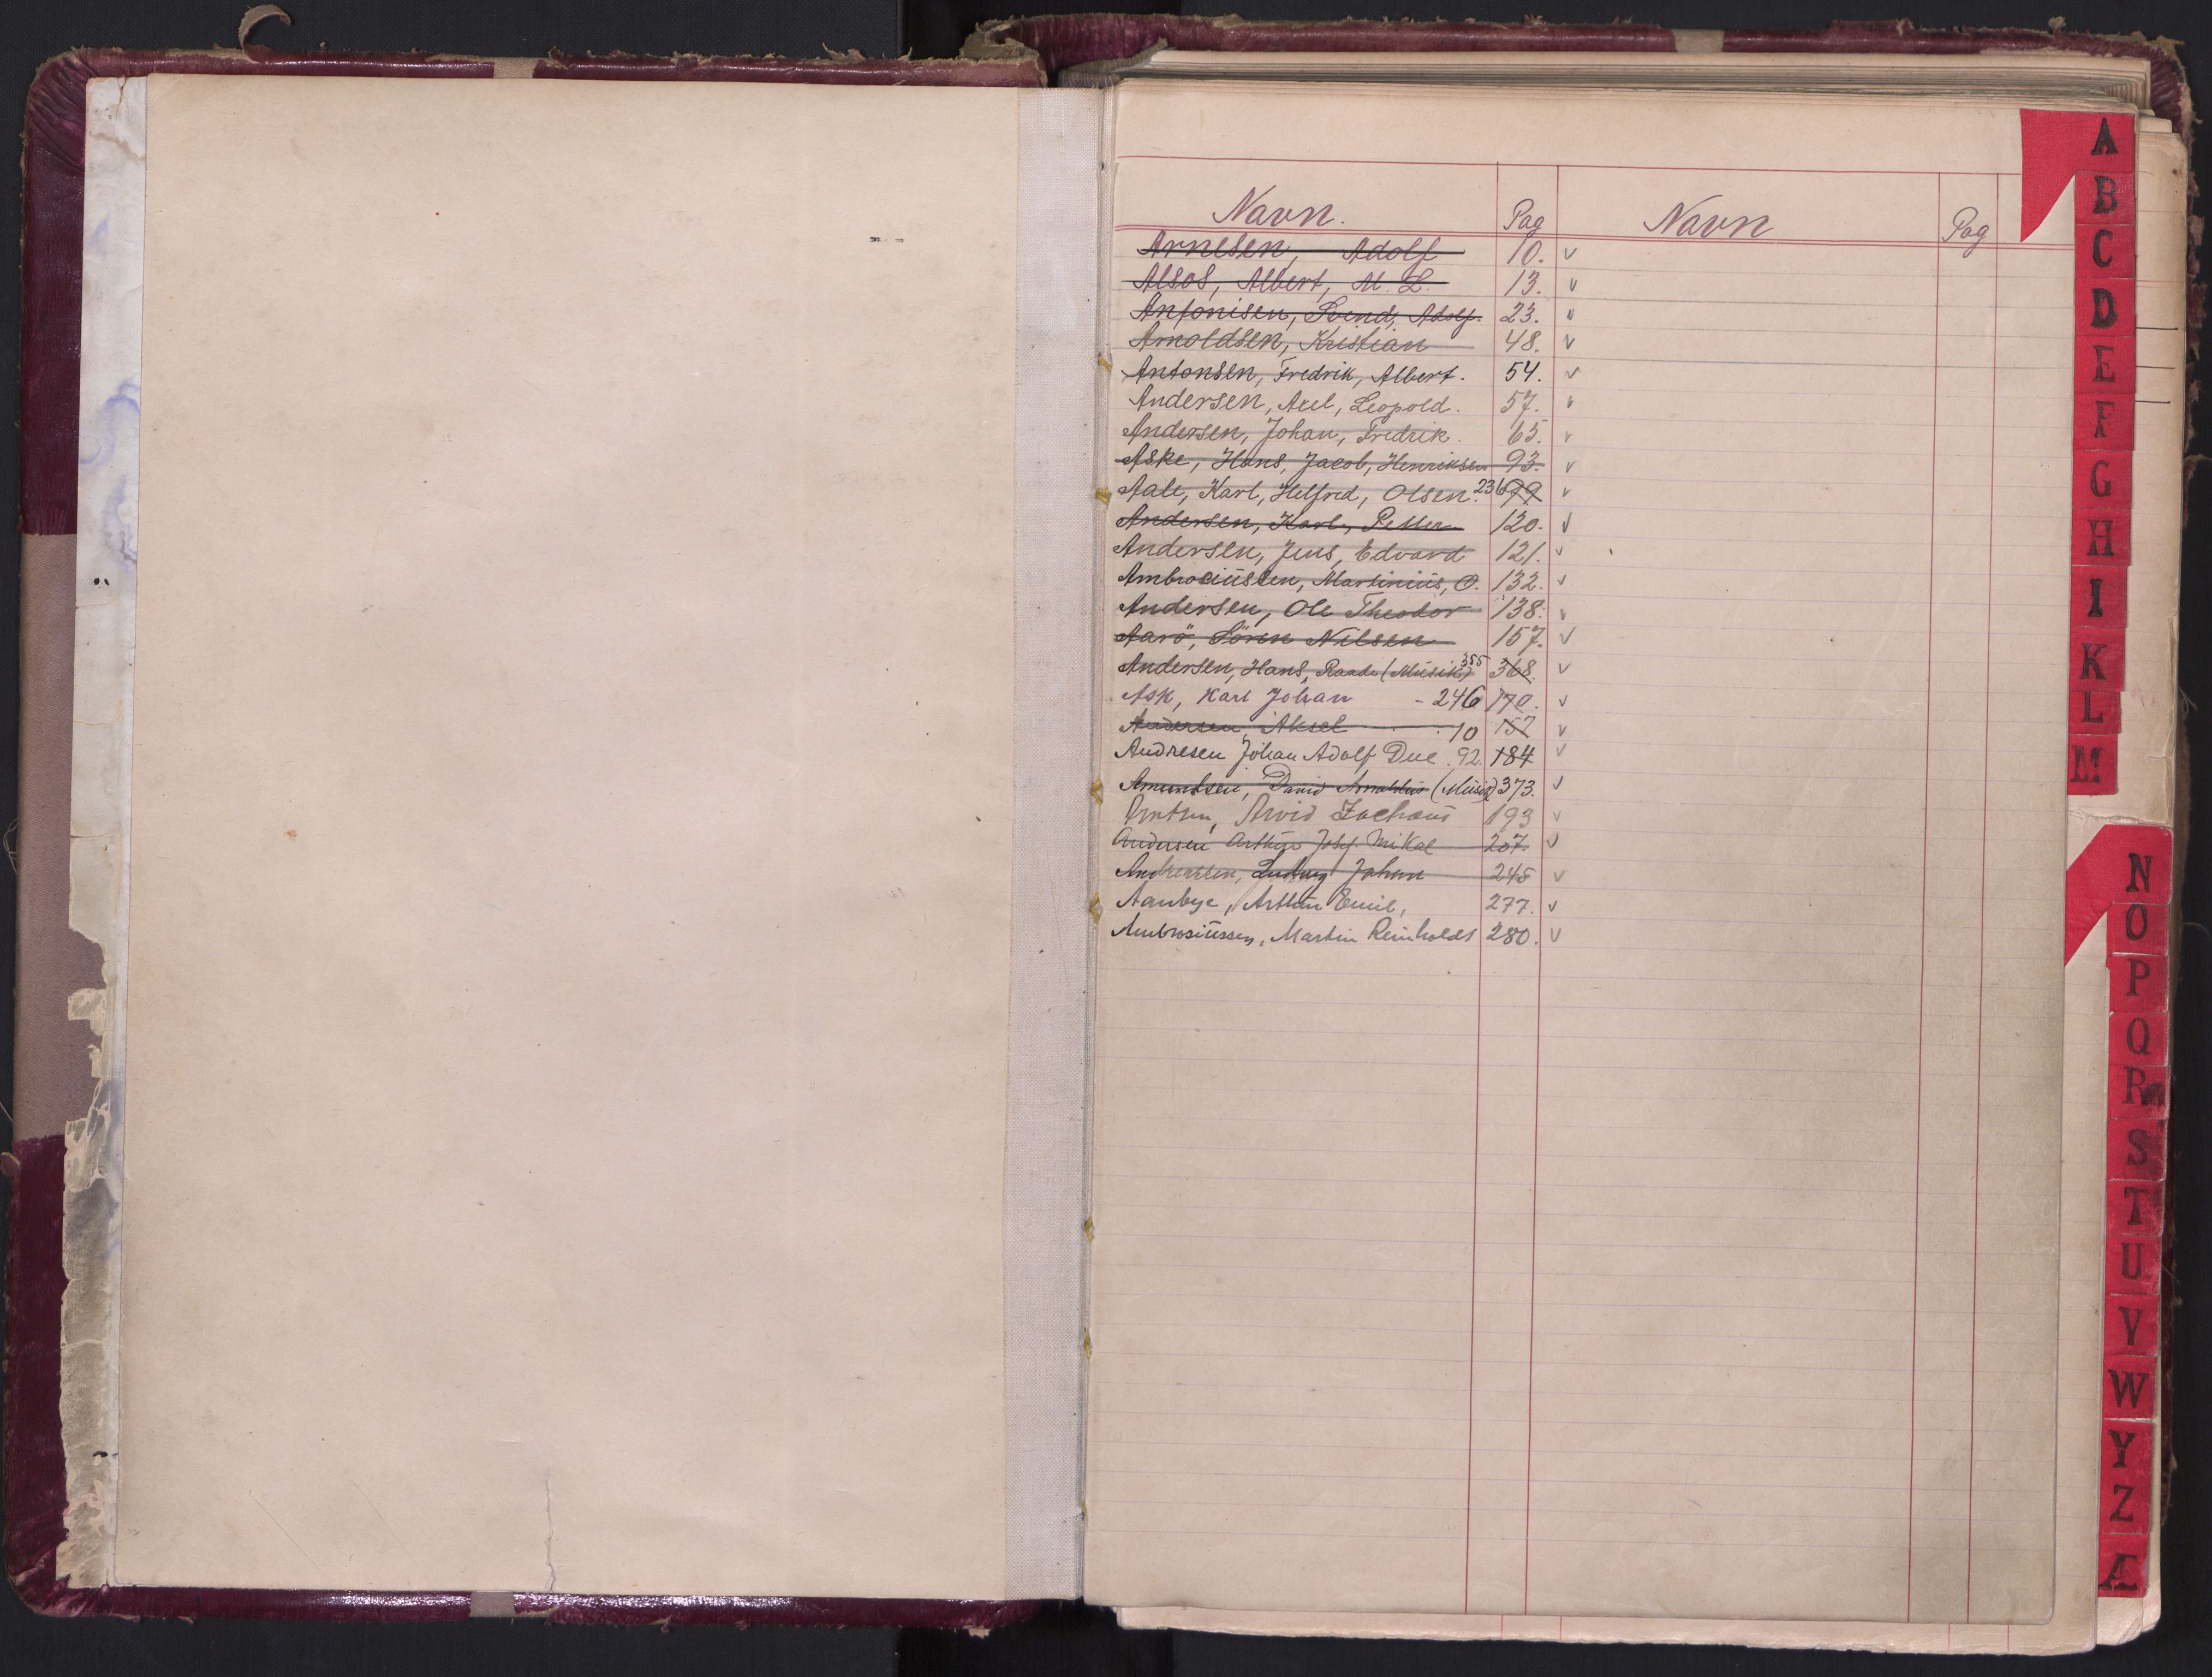 Navn. Pag Navn Pag
Arnesen, Adolf 10. v
Alsos, Albert, M. L. 13. v
Antonisen, Svend, Adolf. 23. v
Arnoldsen, Kristian 48. v
Antonsen, Fredrik, Albert. 54. v
Andersen, Axel, Leopold. 57. v
Andersen, Johan, Fredrik. 65. v
Aske, Hans, Jacob, Henriksen 93. v
Aale, Karl, Helfred, Olsen. 236 99 v
Andersen, Karl, Petter 120. v
Andersen, Jens, Edvard 121. v
Ambrosiüssen, Martiniüs, O. 132. v
Andersen, Ole Theodor 138. v
Aarö, Sören Nilsen 157. v
Andersen, Hans, Raade (Müsik) 355 368. v
Ask, Karl Johan - 246 170. v
Andersen, Aksel 10 157 v
Andresen Johan Adolf Due. 92. 184 v
Amundsen, David (Müsik) 373. v
Arntsen, Arvid Zachæus 193 v
Andersen Arthur Josef. Mikal 207. v
Andreassen, Ludvig Johan 245 v
Aanbye, Arthur Emil, 277. v
Ambrosiüssen, Martin Reinholdt 280. v
A
B
C
D
E
F
G
H
I
K
L
M
N
O
P
Q
R
S
T
U
V
W
Y
Z
Æ